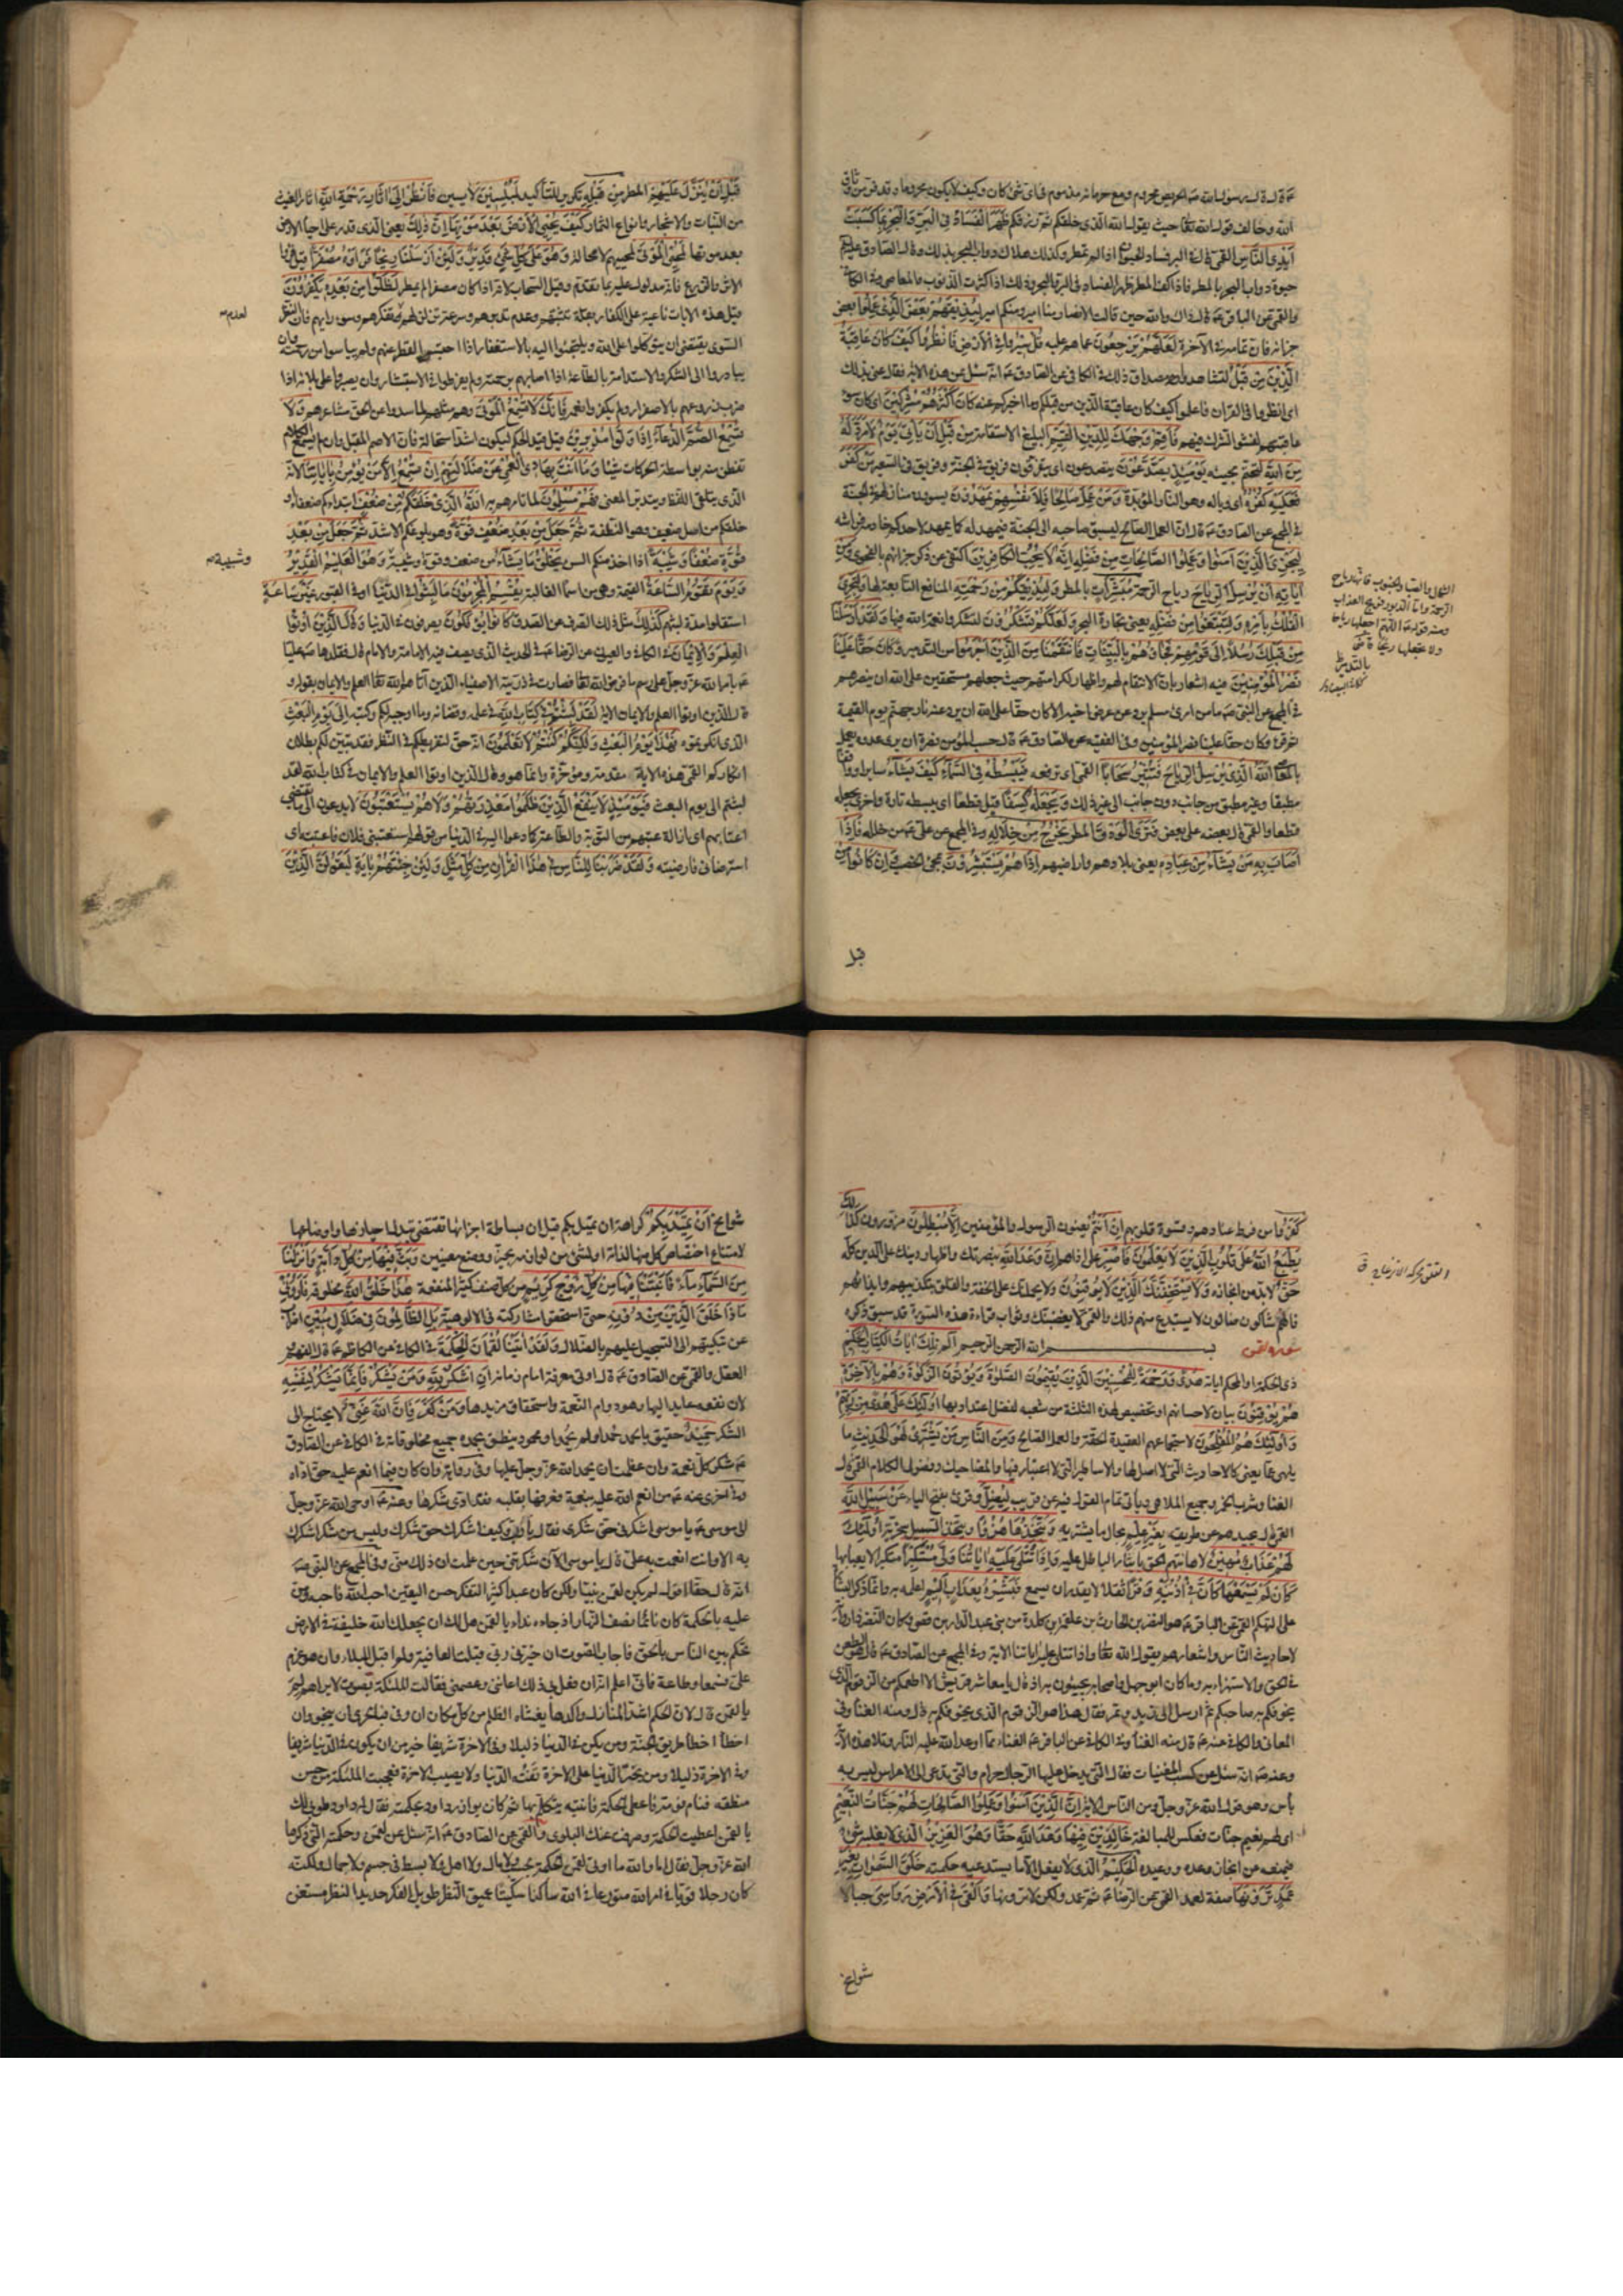 الله وخالف قول الله تعالى حيث يقول الله الذي خلقكم ثم رزقكم ظَهَرَ الْفَسَادُ فِي الْبَرِّ وَالْبَحْرِ بِمَا كَسَبَتْ
أَيْدِي النَّاسِ القمي قال في البر فساد الحيوان اذا لم تمطر وكذلك هلاك دواب البحر بذلك وقال الصادق عليه السلام
حيوة دواب البحر بالمطر فاذا كف المطر ظهر الفساد في البر والبحر وذلك اذا كثرت الذنوب والمعاصي وفي الكافي
والقمي عن الباقر ع قال ذاك والله حين قالت الانصار منا امير ومنكم امير لِيُذِيقَهُمْ بَعْضَ الَّذِي عَمِلُوا بعض
جزائه فان تمامه في الآخرة لَعَلَّهُمْ يَرْجِعُونَ عما هم عليه قُلْ سِيرُوا فِي الْأَرْضِ فَانْظُرُوا كَيْفَ كَانَ عَاقِبَةُ
الَّذِينَ مِنْ قَبْلُ لتشاهدوا مصداق ذلك في الكافي عن الصادق ع انه سئل عن هذه الآية فقال عنى بذلك
اى انظروا في القرآن فاعلموا كيف كان عاقبة الذين من قبلكم وما اخبركم عنه كَانَ أَكْثَرُهُمْ مُشْرِكِينَ اى كان سوء
عاقبتهم لفشو الشرك فيهم فَأَقِمْ وَجْهَكَ لِلدِّينِ الْقَيِّمِ البليغ الاستقامة مِنْ قَبْلِ أَنْ يَأْتِيَ يَوْمٌ لَا مَرَدَّ لَهُ
مِنَ اللَّهِ لتحتم مجيئه يَوْمَئِذٍ يَصَّدَّعُونَ يتصدعون اى يتفرقون فريق في الجنة وفريق في السعير مَنْ كَفَرَ
فَعَلَيْهِ كُفْرُهُ اى وباله وهو النار المؤبدة وَمَنْ عَمِلَ صَالِحًا فَلِأَنْفُسِهِمْ يَمْهَدُونَ يسوون منازلهم في الجنة
في المجمع عن الصادق ع قال ان العمل الصالح ليسبق صاحبه الى الجنة فيمهد له كما يمهد لاحدكم خادمه فراشه
لِيَجْزِيَ الَّذِينَ آمَنُوا وَعَمِلُوا الصَّالِحَاتِ مِنْ فَضْلِهِ إِنَّهُ لَا يُحِبُّ الْكَافِرِينَ اكتفى عن ذكر جزائهم بالفحوى وَمِنْ
آيَاتِهِ أَنْ يُرْسِلَ الرِّيَاحَ رياح الرحمة مُبَشِّرَاتٍ بالمطر وَلِيُذِيقَكُمْ مِنْ رَحْمَتِهِ المنافع التابعة لها وَلِتَجْرِيَ
الْفُلْكُ بِأَمْرِهِ وَلِتَبْتَغُوا مِنْ فَضْلِهِ يعنى تجارة البحر وَلَعَلَّكُمْ تَشْكُرُونَ لتشكروا نعمة الله فيها وَلَقَدْ أَرْسَلْنَا
مِنْ قَبْلِكَ رُسُلًا إِلَى قَوْمِهِمْ فَجَاءُوهُمْ بِالْبَيِّنَاتِ فَانْتَقَمْنَا مِنَ الَّذِينَ أَجْرَمُوا بالتدمير وَكَانَ حَقًّا عَلَيْنَا
نَصْرُ الْمُؤْمِنِينَ فيه اشعار بان الانتقام لهم واظهار لكرامتهم حيث جعلهم مستحقين على الله ان ينصرهم
في المجمع عن النبي ص ما من امرئ مسلم يرد عن عرض اخيه الا كان حقا على الله ان يرد عنه نار جهنم يوم القيمة
ثم قرأ وكان حقا علينا نصر المؤمنين وفي الفقيه عن الصادق ع قال حسب المؤمن نصرة ان يرى عدوه يعمل
بالمعاصي اللَّهُ الَّذِي يُرْسِلُ الرِّيَاحَ فَتُثِيرُ سَحَابًا القمي اى ترفعه فَيَبْسُطُهُ فِي السَّمَاءِ كَيْفَ يَشَاءُ سايرا وواقفا
مطبقا وغير مطبق من جانب دون جانب الى غير ذلك وَيَجْعَلُهُ كِسَفًا قيل قطعا اى يبسطه تارة واخرى يجعله
قطعا والقمي قال بعضه على بعض فَتَرَى الْوَدْقَ المطر يَخْرُجُ مِنْ خِلَالِهِ وفي المجمع عن علي ع من خلله فَإِذَا
أَصَابَ بِهِ مَنْ يَشَاءُ مِنْ عِبَادِهِ يعنى بلادهم واراضيهم إِذَا هُمْ يَسْتَبْشِرُونَ بمجئ الخصب وَإِنْ كَانُوا مِنْ
الشمال والصبا والجنوب فانها رياح
الرحمة واما الدبور فريح العذاب
ومنه قوله ص اللهم اجعلها رياحا
ولا تجعلها ريحا
قبل
قَبْلِ أَنْ يُنَزَّلَ عَلَيْهِمْ المطر مِنْ قَبْلِهِ تكرير للتأكيد لَمُبْلِسِينَ لآيسين فَانْظُرْ إِلَى آثَارِ رَحْمَةِ اللَّهِ اثار الغيث
من النبات والاشجار وانواع الثمار كَيْفَ يُحْيِي الْأَرْضَ بَعْدَ مَوْتِهَا إِنَّ ذَلِكَ يعنى الذي قدر على احياء الارض
بعد موتها لَمُحْيِي الْمَوْتَى لمحييهم لا محالة وَهُوَ عَلَى كُلِّ شَيْءٍ قَدِيرٌ وَلَئِنْ أَرْسَلْنَا رِيحًا فَرَأَوْهُ مُصْفَرًّا قيل فرأوا
الاثر والزرع فانه مدلول عليه بما تقدم وقيل السحاب لانه اذا كان مصفرا لم يمطر لَظَلُّوا مِنْ بَعْدِهِ يَكْفُرُونَ
قيل هذه الايات ناعية على الكفار بقلة تثبتهم وعدم تدبرهم وسرعة تزلزلهم لعدم تفكرهم وسوء رايهم فان النظر
السوى يقتضى ان يتوكلوا على الله ويلتجئوا اليه بالاستغفار اذا احتبس القطر عنهم ولم ييأسوا من رحمته وان
يبادروا الى الشكر والاستدامة بالطاعة اذا اصابهم برحمته ولم يفرطوا في الاستبشار وان يصبروا على بلائه اذا
ضرب زروعهم بالاصفرار ولم يكفروا نعمه فَإِنَّكَ لَا تُسْمِعُ الْمَوْتَى وهم مثلهم لما سدوا عن الحق مشاعرهم وَلَا
تُسْمِعُ الصُّمَّ الدُّعَاءَ إِذَا وَلَّوْا مُدْبِرِينَ قيل قيد الحكم ليكون اشد استحالة فان الاصم المقبل وان لم يسمع الكلام
تفطن منه بواسطة الحركات شيئا وَمَا أَنْتَ بِهَادِي الْعُمْيِ عَنْ ضَلَالَتِهِمْ إِنْ تُسْمِعُ إِلَّا مَنْ يُؤْمِنُ بِآيَاتِنَا لانه
الذي يتلقى اللفظ ويتدبر المعنى فَهُمْ مُسْلِمُونَ لما تامرهم به اللَّهُ الَّذِي خَلَقَكُمْ مِنْ ضَعْفٍ ابتداءكم ضعفاء او
خلقكم من اصل ضعيف وهو النطفة ثُمَّ جَعَلَ مِنْ بَعْدِ ضَعْفٍ قُوَّةً وهو بلوغكم الاشد ثُمَّ جَعَلَ مِنْ بَعْدِ
قُوَّةٍ ضَعْفًا وَشَيْبَةً اذا اخذ منكم السن يَخْلُقُ مَا يَشَاءُ من ضعف وقوة وشيبة وَهُوَ الْعَلِيمُ الْقَدِيرُ
وَيَوْمَ تَقُومُ السَّاعَةُ القيمة وهي من اسمائها الغالبة يُقْسِمُ الْمُجْرِمُونَ مَا لَبِثُوا في الدنيا او في القبور غَيْرَ سَاعَةٍ
استقلوا مدة لبثهم كَذَلِكَ مثل ذلك الصرف عن الصدق كَانُوا يُؤْفَكُونَ يصرفون في الدنيا وَقَالَ الَّذِينَ أُوتُوا
الْعِلْمَ وَالْإِيمَانَ في الكافي والعيون عن الرضا ع في الحديث الذي يصف فيه الامامة والامام قال فقلدها ص عليا
ع بامر الله عز وجل على رسم ما فرض الله تعالى فصارت في ذريته الاصفياء الذين آتاهم الله تعالى العلم والايمان بقوله و
قال الذين اوتوا العلم والايمان الآية لَقَدْ لَبِثْتُمْ فِي كِتَابِ اللَّهِ في علمه وقضائه وما اوجبه لكم وكتبه إِلَى يَوْمِ الْبَعْثِ
الذي انكرتموه فَهَذَا يَوْمُ الْبَعْثِ وَلَكِنَّكُمْ كُنْتُمْ لَا تَعْلَمُونَ انه حق لتفريطكم في النظر فقد تبين لكم بطلان
انكاركم القمي هذه الآية مقدمة ومؤخرة وانما هو وقال الذين اوتوا العلم والايمان في كتاب الله لقد
لبثتم الى يوم البعث فَيَوْمَئِذٍ لَا يَنْفَعُ الَّذِينَ ظَلَمُوا مَعْذِرَتُهُمْ وَلَا هُمْ يُسْتَعْتَبُونَ لا يدعون الى ما يقتضى
اعتابهم اى ازالة عتبهم من التوبة والطاعة كما دعوا اليه في الدنيا من قولهم استعتبنى فلان فاعتبته اى
استرضانى فارضيته وَلَقَدْ ضَرَبْنَا لِلنَّاسِ فِي هَذَا الْقُرْآنِ مِنْ كُلِّ مَثَلٍ وَلَئِنْ جِئْتَهُمْ بِآيَةٍ لَيَقُولَنَّ الَّذِينَ
لعدم
وشيبة
كَفَرُوا من فرط عنادهم وقسوة قلوبهم إِنْ أَنْتُمْ يعنون الرسول والمؤمنين إِلَّا مُبْطِلُونَ مزورون كَذَلِكَ
يَطْبَعُ اللَّهُ عَلَى قُلُوبِ الَّذِينَ لَا يَعْلَمُونَ فَاصْبِرْ على اذاهم إِنَّ وَعْدَ اللَّهِ بنصرتك واظهار دينك على الدين كله
حَقٌّ لا بد من انجازه وَلَا يَسْتَخِفَّنَّكَ الَّذِينَ لَا يُوقِنُونَ ولا يحملنك على الخفة والقلق بتكذيبهم وايذائهم
فانهم شاكون ضالون لا يستبدع منهم ذلك والقمي لا يغضبنك وثواب قراءة هذه السورة قد سبق ذكره
سورة لقمن بسم الله الرحمن الرحيم الم تِلْكَ آيَاتُ الْكِتَابِ الْحَكِيمِ
ذى الحكمة او المحكم اياته هُدًى وَرَحْمَةً لِلْمُحْسِنِينَ الَّذِينَ يُقِيمُونَ الصَّلَاةَ وَيُؤْتُونَ الزَّكَاةَ وَهُمْ بِالْآخِرَةِ
هُمْ يُوقِنُونَ بيان لاحسانهم او تخصيص لهذه الثلثة من شعبه لفضل اعتداد بها أُولَئِكَ عَلَى هُدًى مِنْ رَبِّهِمْ
وَأُولَئِكَ هُمُ الْمُفْلِحُونَ لاستجماعهم العقيدة الحقة والعمل الصالح وَمِنَ النَّاسِ مَنْ يَشْتَرِي لَهْوَ الْحَدِيثِ ما
يلهى عما يعنى كالاحاديث التي لا اصل لها والاساطير التي لا اعتبار فيها والمضاحيك وفضول الكلام القمي قال
الغنا وشرب الخمر وجميع الملاهى ويأتى تمام القول فيه عن قريب لِيُضِلَّ وقرئ بفتح الياء عَنْ سَبِيلِ اللَّهِ
القمي قال يحيدهم عن طريق الله بِغَيْرِ عِلْمٍ بحال ما يشتريه وَيَتَّخِذَهَا هُزُوًا ويتخذ السبيل سخرية أُولَئِكَ
لَهُمْ عَذَابٌ مُهِينٌ لاهانتهم الحق بايثار الباطل عليه وَإِذَا تُتْلَى عَلَيْهِ آيَاتُنَا وَلَّى مُسْتَكْبِرًا متكبرا لا يعبأ بها
كَأَنْ لَمْ يَسْمَعْهَا كَأَنَّ فِي أُذُنَيْهِ وَقْرًا ثقلا لا يقدر ان يسمع فَبَشِّرْهُ بِعَذَابٍ أَلِيمٍ اعلمه به وانما ذكر البشارة
على التهكم القمي عن الباقر ع هو النضر بن الحارث بن علقمة بن كلدة من بنى عبد الدار بن قصى وكان النضر ذا رواية
لاحاديث الناس واشعارهم يقول الله تعالى واذا تتلى عليه اياتنا الآية وفي المجمع عن الصادق ع قال هو الطعن
في الحق والاستهزاء به وما كان ابو جهل واصحابه يجيئون به اذ قال يا معاشر قريش الا اطعمكم من الزقوم الذي
يخوفكم به صاحبكم ثم ارسل الى زبد وتمر فقال هذا هو الزقوم الذي يخوفكم به قال ومنه الغنا وفي
المعاني والكافي عنه ع قال منه الغنا وفي الكافي عن الباقر ع الغناء مما اوعد الله عليه النار وتلا هذه الآية
وعنه ع انه سئل عن كسب المغنيات فقال التي يدخل عليها الرجال حرام والتي تدعى الى الاعراس ليس به
بأس وهو قول الله عز وجل ومن الناس الآية إِنَّ الَّذِينَ آمَنُوا وَعَمِلُوا الصَّالِحَاتِ لَهُمْ جَنَّاتُ النَّعِيمِ
اى لهم نعيم جنات فعكس للمبالغة خَالِدِينَ فِيهَا وَعْدَ اللَّهِ حَقًّا وَهُوَ الْعَزِيزُ الذي لا يغلبه شئ
فيمنعه عن انجاز وعده ووعيده الْحَكِيمُ الذي لا يفعل الا ما يستدعيه حكمته خَلَقَ السَّمَوَاتِ بِغَيْرِ
عَمَدٍ تَرَوْنَهَا صفة لعمد القمي عن الرضا ع ثم عمد ولكن لا ترونها وَأَلْقَى فِي الْأَرْضِ رَوَاسِيَ جبالا
شوامخ
شوامخ أَنْ تَمِيدَ بِكُمْ كراهة ان تميل بكم قيل ان بساطة اجزائها تقتضى تبدل احيازها واوضاعها
لامتناع اختصاص كل منها لذاته او لشئ من لوازمه بحيز ووضع معينين وَبَثَّ فِيهَا مِنْ كُلِّ دَابَّةٍ وَأَنْزَلْنَا
مِنَ السَّمَاءِ مَاءً فَأَنْبَتْنَا فِيهَا مِنْ كُلِّ زَوْجٍ كَرِيمٍ من كل صنف كثير المنفعة هَذَا خَلْقُ اللَّهِ مخلوقه فَأَرُونِي
مَاذَا خَلَقَ الَّذِينَ مِنْ دُونِهِ حتى استحقوا مشاركته في الالوهية بَلِ الظَّالِمُونَ فِي ضَلَالٍ مُبِينٍ اضراب
عن تبكيتهم الى التسجيل عليهم بالضلال وَلَقَدْ آتَيْنَا لُقْمَانَ الْحِكْمَةَ في الكافي عن الكاظم ع قال الفهم و
العقل والقمي عن الصادق ع قال اوتى معرفة امام زمانه أَنِ اشْكُرْ لِلَّهِ وَمَنْ يَشْكُرْ فَإِنَّمَا يَشْكُرُ لِنَفْسِهِ
لان نفعه عايد اليها وهو دوام النعمة واستحقاق مزيدها وَمَنْ كَفَرَ فَإِنَّ اللَّهَ غَنِيٌّ لا يحتاج الى
الشكر حَمِيدٌ حقيق بالحمد حمد او لم يحمد او محمود ينطق بحمده جميع مخلوقاته في الكافي عن الصادق
ع شكر كل نعمة وان عظمت ان يحمد الله عز وجل عليها وفي رواية وان كان فيما انعم عليه حق اداه
وفي اخرى عنه ع من انعم الله عليه بنعمة فعرفها بقلبه فقد ادى شكرها وعنه ع اوحى الله عز وجل
الى موسى ع يا موسى اشكرنى حق شكرى فقال يا رب وكيف اشكرك حق شكرك وليس من شكر اشكرك
به الا وانت انعمت به على قال يا موسى الآن شكرتنى حين علمت ان ذلك منى وفي المجمع عن النبي ص
انه قال حقا اقول لم يكن لقمن نبيا ولكن كان عبدا كثير التفكر حسن اليقين احب الله فاحبه ومن
عليه بالحكمة كان نائما نصف النهار اذ جاءه نداء يا لقمن هل لك ان يجعلك الله خليفة في الارض
تحكم بين الناس بالحق فاجاب الصوت ان خيرنى ربى قبلت العافية ولم اقبل البلاء وان هو عزم
على فسمعا وطاعة فانى اعلم انه ان فعل بى ذلك اعاننى وعصمنى فقالت الملئكة بصوت لا يراهم لم
يا لقمن قال لان الحكم اشد المنازل واكدها يغشاه الظلم من كل مكان ان وقى فبالحرى ان ينجو وان
اخطأ اخطأ طريق الجنة ومن يكن في الدنيا ذليلا وفي الآخرة شريفا خير من ان يكون في الدنيا شريفا
وفي الاخرة ذليلا ومن يختر الدنيا على الآخرة تفته الدنيا ولا يصيب الآخرة فعجبت الملئكة من حسن
منطقه فنام نومة فاعطى الحكمة فانتبه يتكلم بها ثم كان يوازر داود بحكمته فقال له داود طوبى لك
يا لقمن اعطيت الحكمة وصرفت عنك البلوى والقمي عن الصادق ع انه سئل عن لقمن وحكمته التي ذكرها
الله عز وجل فقال اما والله ما اوتى لقمن الحكمة بحسب ولا مال ولا اهل ولا بسط في جسم ولا جمال ولكنه
كان رجلا قويا في امر الله متورعا في الله ساكتا سكيتا عميق النظر طويل الفكر حديد النظر مستغن